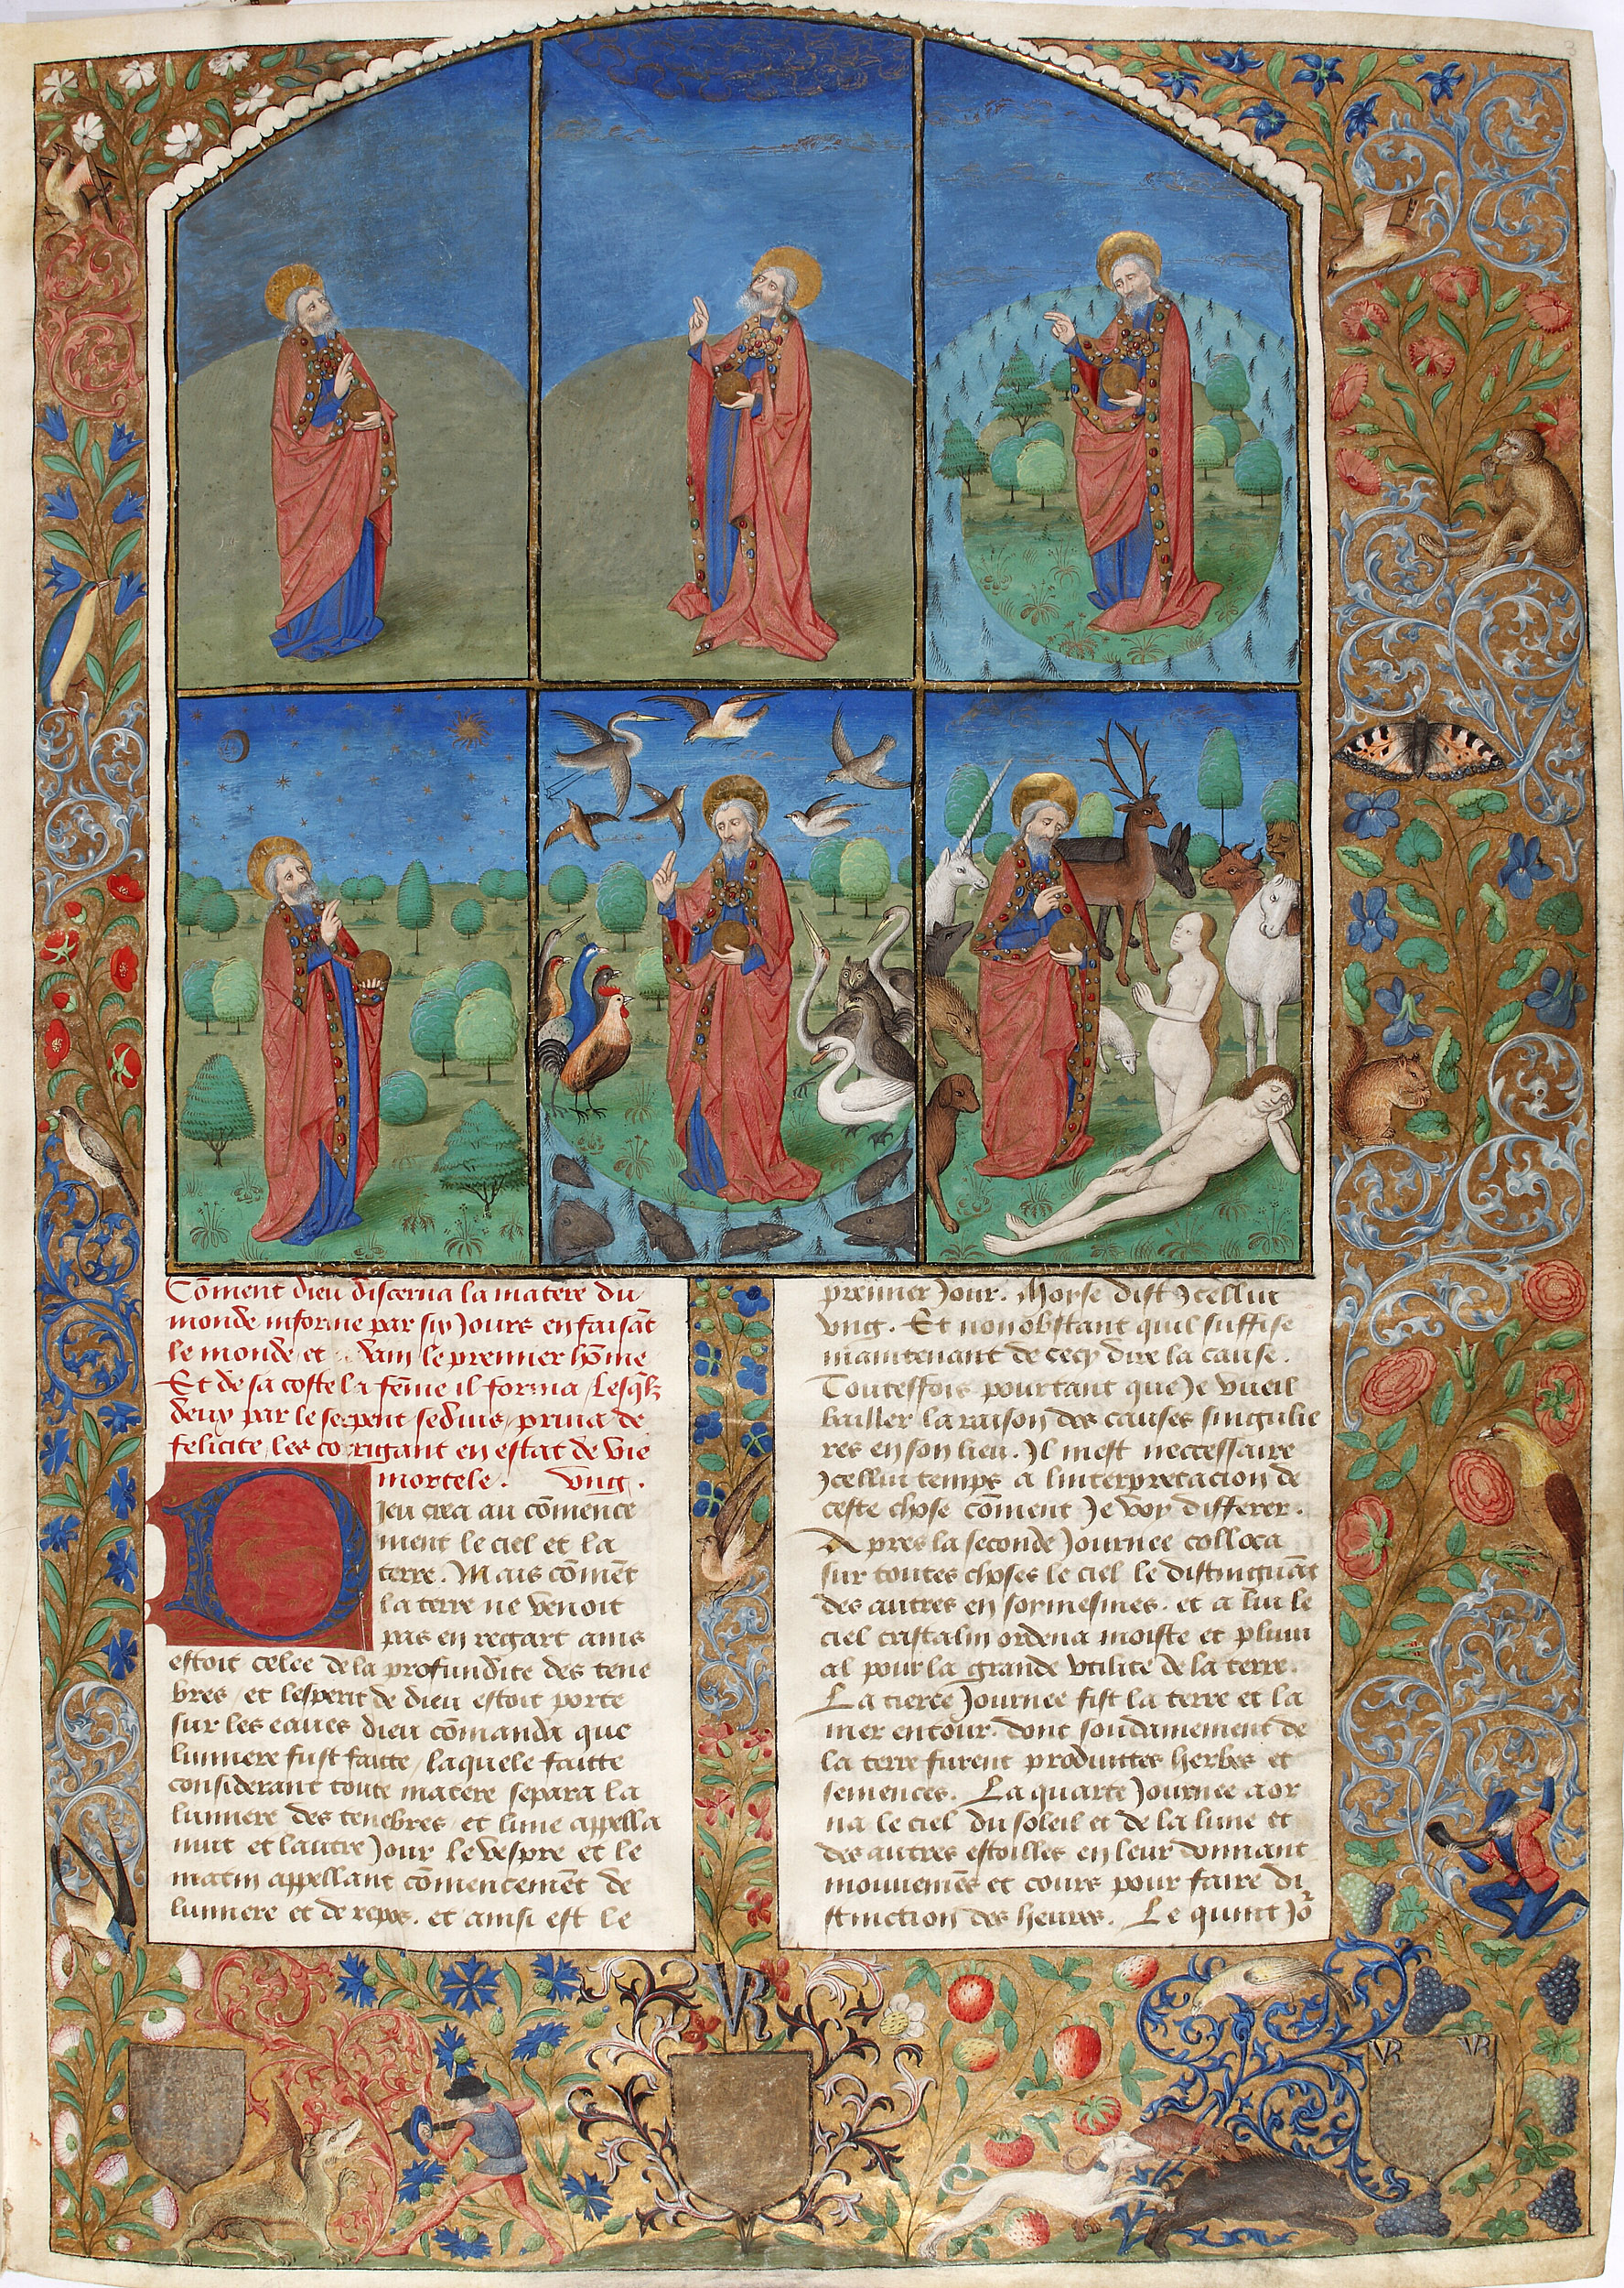 Cōment dieu discerna la matere du
monde informe par six Jours en faisāt
le monde et adam le premier hōme
Et de sa coste la fēme il forma / Lesqlz
deux par le serpent seduis / priua de
felicite / les corrigant en estat de vie
mortele. vng.
Dieu crea au cōmence
ment le ciel et la
terre. Mais cōmēt
la terre ne venoit
pas en regart ains
estoit celee de la profundite des tene
bres / et lesperit de dieu estoit porte
sur les eaues dieu cōmanda que
lumiere fust faitte / laquele faitte
considerant toute matere separa la
lumiere des tenebres / et lune appella
nuit et lautre Jour le vespre et le
matin appellant cōmencemēt de
lumiere et de repos. et ainsi est le
premier Jour. Moyse dist ycellui
vng. Et non obstant quil suffise
maintenant de cecy dire la cause.
Touteffois pourtant que Je vueil
bailler la raison des causes singulie
res en son lieu. Il mest neccessaire
ycellui temps a linterpretacion de
ceste chose cōment Je voy differer.
Apres la seconde Journee colloca
sur toutes choses le ciel le distinguāt
des autres en soymesmes. et a lui le
ciel cristalin ordena moiste et pluui
al pour la grande vtilite de la terre.
La tierce Journee fist la terre et la
mer entour. dont soudainement de
la terre furent produittes herbes et
semences. La quarte Journee aor
na le ciel du soleil et de la lune et
des autres estoilles en leur donnant
mouuemēs et cours pour faire di
stinction des heures. Le quint Jor
VR
VR VR